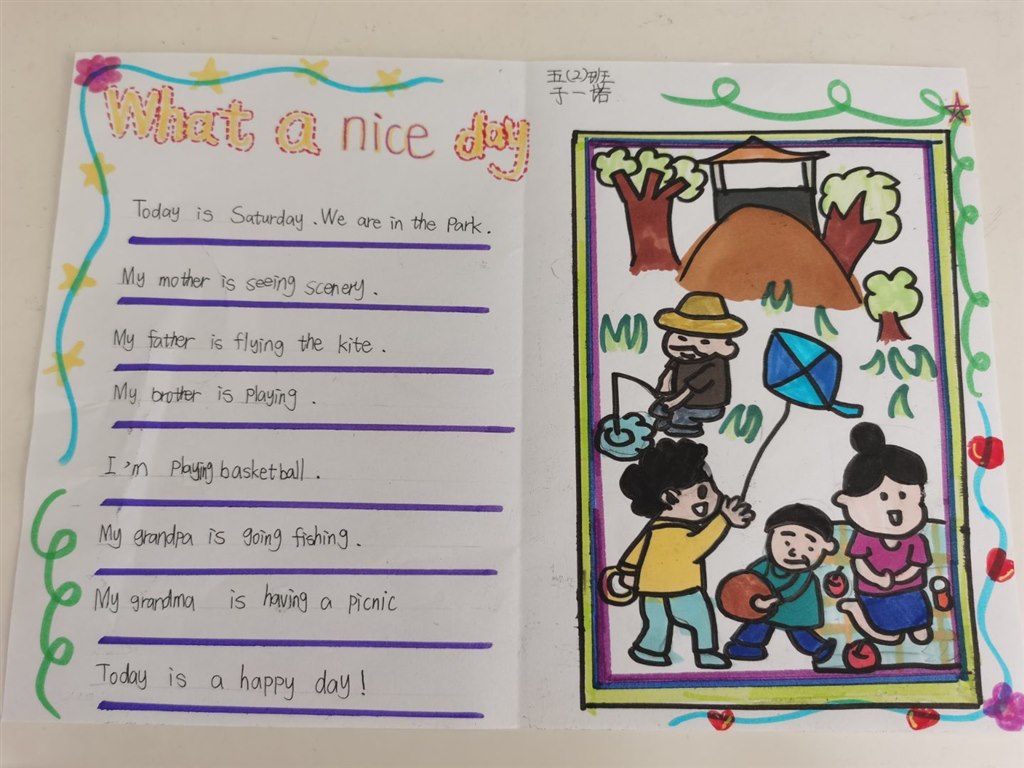 What a nice day
五(2)班
于一诺
Today is Saturday. We are in the Park.
My mother is seeing scenery.
My father is flying the kite.
My brother is playing.
I'm playing basketball.
My grandpa is going fishing.
My grandma is having a picnic
Today is a happy day!